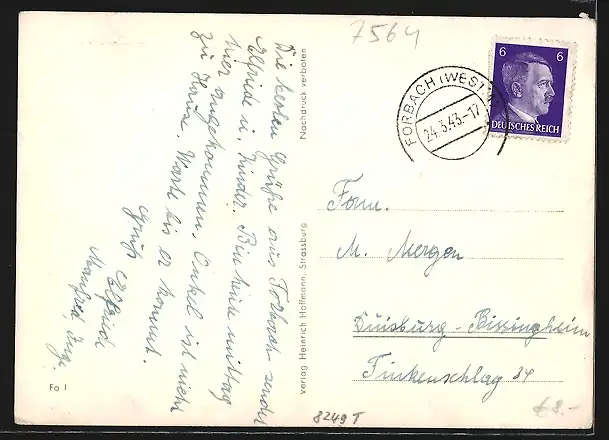 7564
6 6
DEUTSCHES REICH
FORBACH (WESTM)
24.3.43.-17
Die besten Grüße aus Forbach sendet
Elfriede u. Kinder. Bin heute mittag
hier angekommen. Onkel ist nicht
zu Hause. Warte bis er kommt.
Gruß Elfriede
Manfred, Inge.
Nachdruck verboten
Verlag Heinrich Hoffmann, Strassburg
Fam.
M. Mergen
Duisburg - Bissingheim
Finkenschlag 34
Fo 1
8249 T
€ 8.-